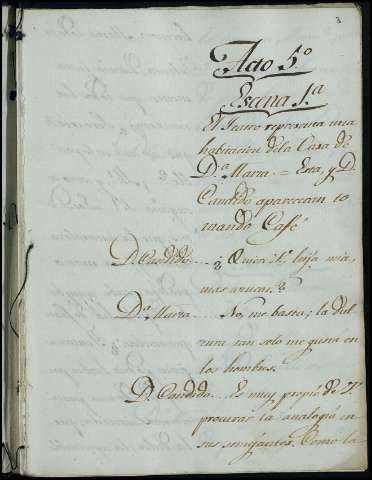 3
Acto 5.º
Escena 1.ª
El Teatro representa una
habitacion dela Casa de
D.ª Maria. = Esta, y D.
Candido apareceran to
mando Café
D. Candido .... ¿ Quiere V. hija mia,
mas azucar. ?
D.ª Maria ..... No, me basta; la dul
zura tan solo me gusta en
los hombres.
D. Candido ... Es muy propio de V.
procurar la analogia en
sus semejantes. Como la